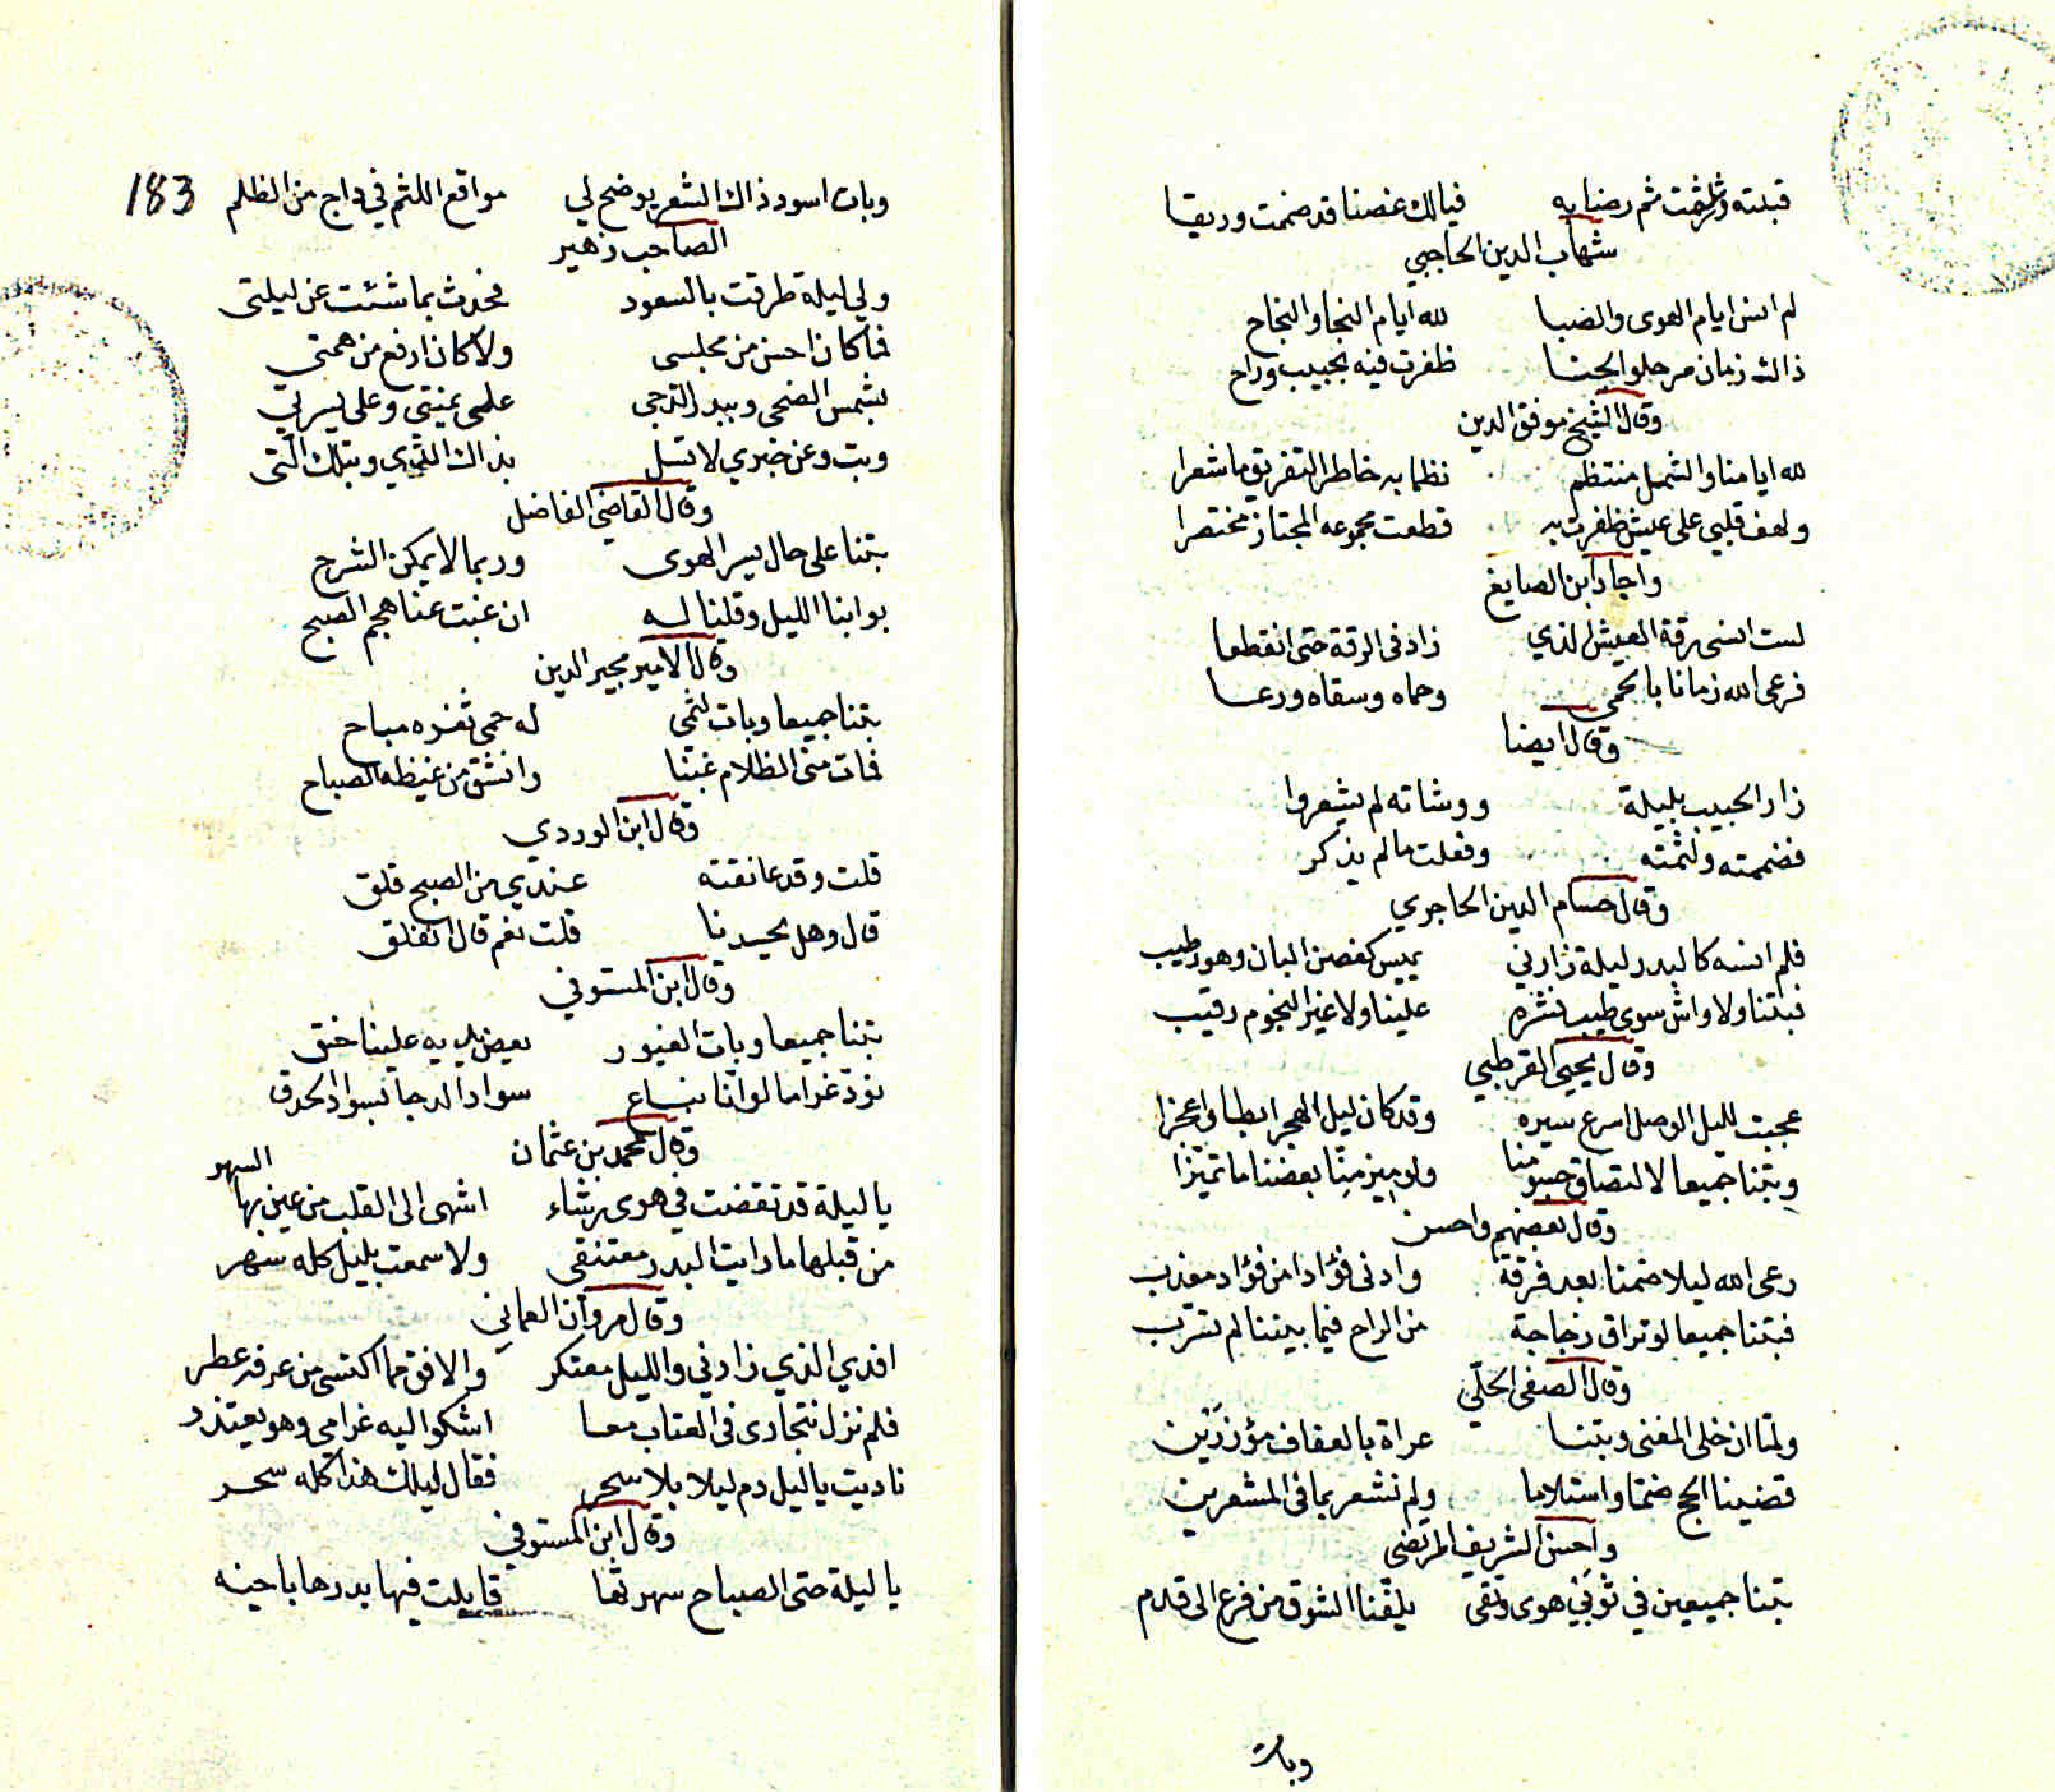 قبلته ورشفت ثم رضابه فيالك غصنا قد ضممت وريقا
شهاب الدين الحاجبي
لم انس ايام الهوى والصبا لله ايام النجا والنجاح
ذاك زمان مر حلو الجنا ظفرت فيه بحبيب وراح
وقال الشيخ موفق الدين
لله ايامنا والشمل منتظم نظما به خاطر التفريق ما شعرا
ولهف قلبي على عيش ظفرت به قطعت مجموعه المجتاز مختصرا
واجاد ابن الصايغ
لست انسى رقة العيش الذي زاد في الرقة حتى انقطعا
فرعى الله زمانا بالحمى وحماه وسقاه ورعا
وقال ايضا
زار الحبيب بليلة ووشاته لم يشعروا
فضممته ولثمته وفعلت مالم يذكر
وقال حسام الدين الحاجري
فلم انسه كالبدر ليلة زارني يميس كغصن البان وهو رطيب
فبتنا ولا واش سوى طيب نشره علينا ولا غير النجوم رقيب
وقال يحيى القرطبي
عجبت لليل الوصل اسرع سيره وقد كان ليل الهجر ابطا واعجزا
وبتنا جميعا لالتصاق جسومنا ولو ميز منا بعضنا ما تميزا
وقال بعضهم واحسن
رعى الله ليلا ضمنا بعد فرقة وادنى فؤادا من فؤاد معذب
فبتنا جميعا لو تراق زجاجة من الراح فيما بيننا لم تسرب
وقال الصفي الحلي
ولما ان خلى المغنى وبتنا عراة بالعفاف مؤزرين
قضينا الحج ضما واستلاما ولم نشعر بما في المشعرين
واحسن الشريف المرتضى
بتنا جميعين في ثوبي هوى وتقى يلفنا الشوق من فرع الى قدم
وبات
183
وبات اسود ذاك الشعر يوضح لي مواقع اللثم في داج من الظلم
الصاحب زهير
ولي ليلة طرقت بالسعود فحدث بما شئت عن ليلتي
فما كان احسن من مجلسى ولا كان ارفع من همتي
بشمس الضحى وببدر الدجى على يمنتي وعلى يسرتي
وبت وعن خبري لا تسل بذاك الذي وبتلك التى
وقال القاضي الفاضل
بتنا على حال يسر الهوى وربما لا يمكن الشرح
بوابنا الليل وقلنا له ان غبت عنا هجم الصبح
وقال الامير مجير الدين
بتنا جميعا وبات لثمى له حمى ثغره مباح
فمات منى الظلام غبنا وانشق من غيظه الصباح
وقال ابن الوردي
قلت وقد عانقته عندي من الصبح قلق
قال وهل يحسدنا قلت نعم قال انفلق
وقال ابن المستوفي
بتنا جميعا وبات الغيور يعض يديه علينا حنق
نود غراما لو انا نباع سواد الدجا بسواد الحدق
وقال محمد بن عثمان
يا ليلة قد تقضت في هوى رشاء اشهى الى القلب من عين بها السهر
من قبلها ما رايت البدر معتنقي ولا سمعت بليل كله سهر
وقال مروان العماني
افدي الذي زارني والليل معتكر والافق مما اكتسى من عرفه عطر
فلم نزل نتجارى في العتاب معا اشكو اليه غرامي وهو يعتذر
ناديت يا ليل دم ليلا بلا سحر فقال ليلك هذا كله سحر
وقال ابن المستوفي
يا ليلة حتى الصباح سهرتها قابلت فيها بدرها باخيه